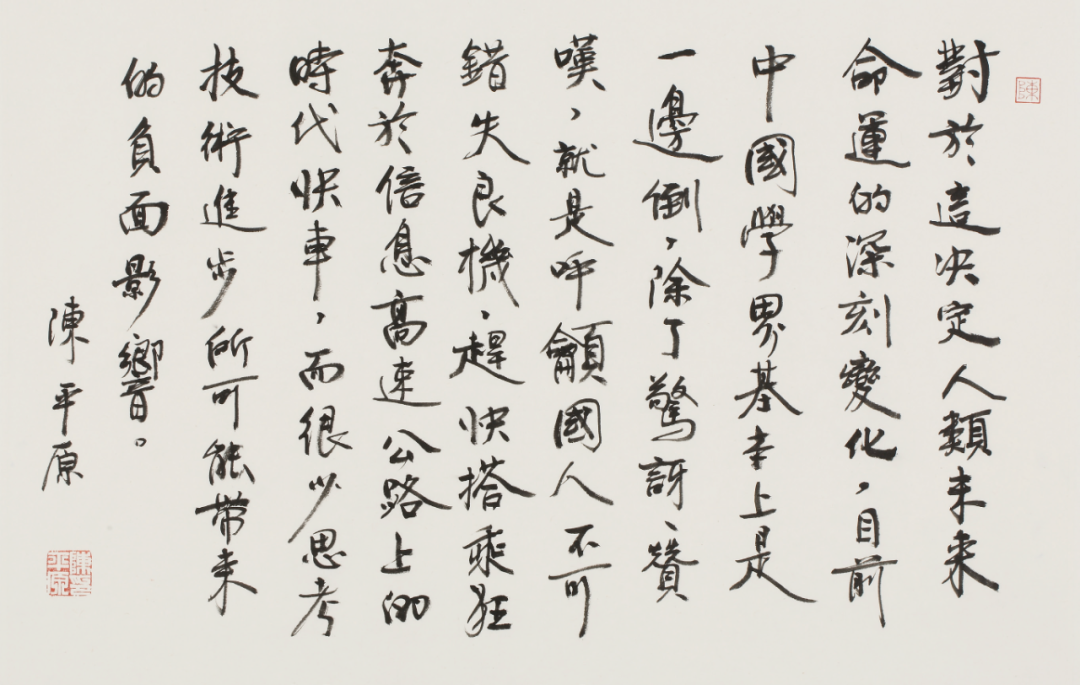 陳
對於這決定人類未來
命運的深刻變化，目前
中國學界基本上是
一邊倒，除了驚訝、贊
嘆，就是呼籲國人不可
錯失良機，趕快搭乘狂
奔於信息高速公路上的
時代快車，而很少思考
技術進步所可能帶來
的負面影響。
陳平原